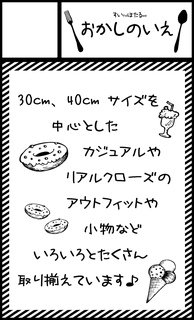 すいーとほたる...
おかしのいえ
30cm、40cm サイズを
中心とした
カジュアルや
リアルクローズの
アウトフィットや
小物など
いろいろとたくさん
取り揃えています♪